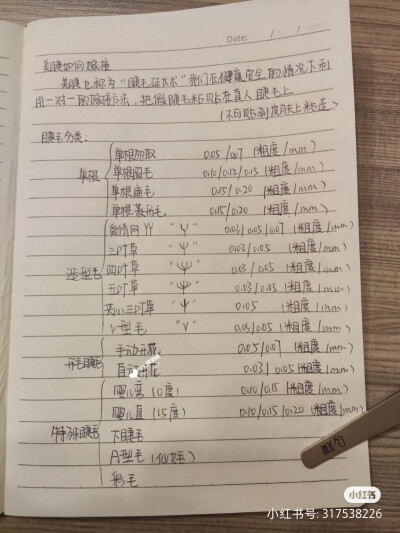 Date: / /
美睫如何嫁接
美睫也称为“睫毛延长术”我们在健康安全的情况下利
用一对一的嫁接方法,把假睫毛粘贴在真人睫毛上
(不可贴到皮肤上粘连)
睫毛分类:
单根
单根 0.05/0.07 (粗度/mm)
单根圆毛 0.10/0.12/0.15 (粗度/mm)
单根扁毛 0.15/0.20 (粗度/mm)
单根菱形毛 0.15/0.20 (粗度/mm)
造型毛
爱情网YY “Y” 0.03/0.05/0.07 (粗度/mm)
三叶草 0.03/0.05 (粗度/mm)
四叶草 0.03/0.05 (粗度/mm)
五叶草 0.03/0.05 (粗度/mm)
三叶草 0.05 (粗度/mm)
V型毛 “V” 0.03/0.05 (粗度/mm)
开花睫毛
手动开花 0.05/0.07 (粗度/mm)
自动开花 0.03/0.05 (粗度/mm)
特殊睫毛
婴儿弯 (0度) 0.10/0.15 (粗度/mm)
婴儿直 (15度) 0.10/0.15/0.20 (粗度/mm)
下睫毛
A型毛 (仙女毛)
彩毛
小红书
小红书号: 317538226